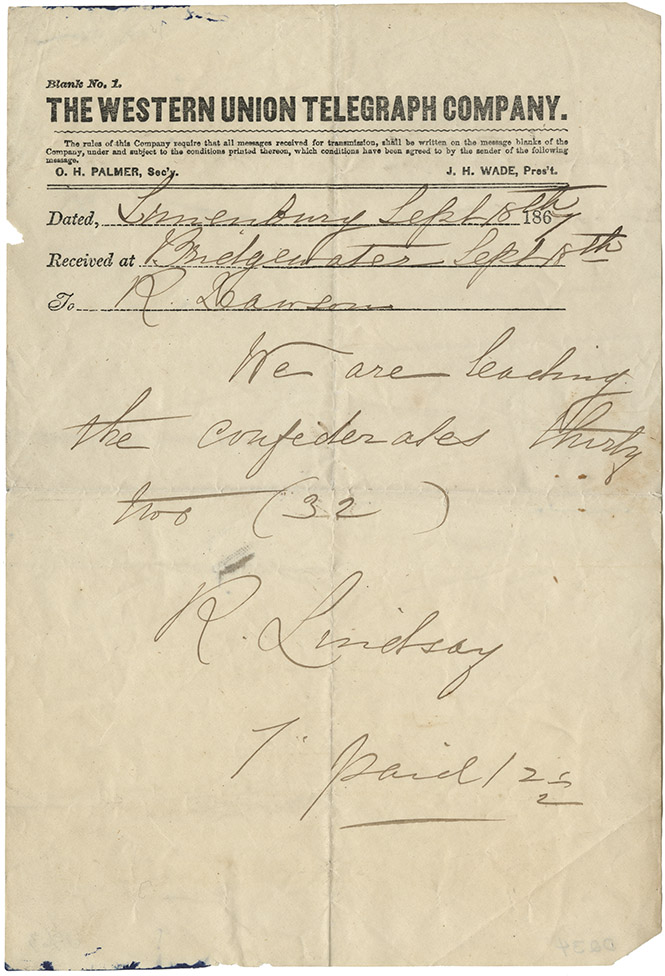 Blank No. 1.
THE WESTERN UNION TELEGRAPH COMPANY.
The rules of this Company require that all messages received for transmission, shall be written on the message blanks of the
Company, under and subject to the conditions printed thereon, which conditions have been agreed to by the sender of the following
message.
O. H. PALMER, Sec'y. J. H. WADE, Pres't.
Dated, Lunenburg Sept 18th 1867
Received at Bridgewater Sept 18th
To R. Dawson
We are leading
the confederates thirty
two (32)
R. Lindsay
paid 12